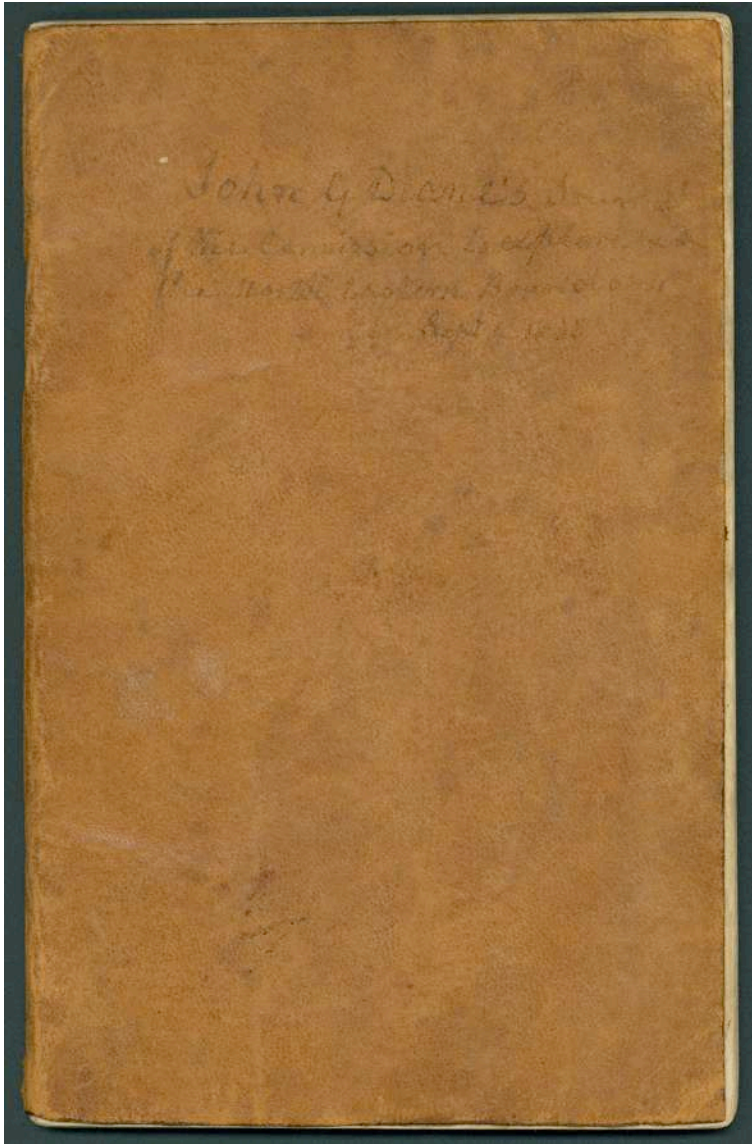 John G Deane's Journal
of the Commission to explore
the North Eastern Boundary
Sept